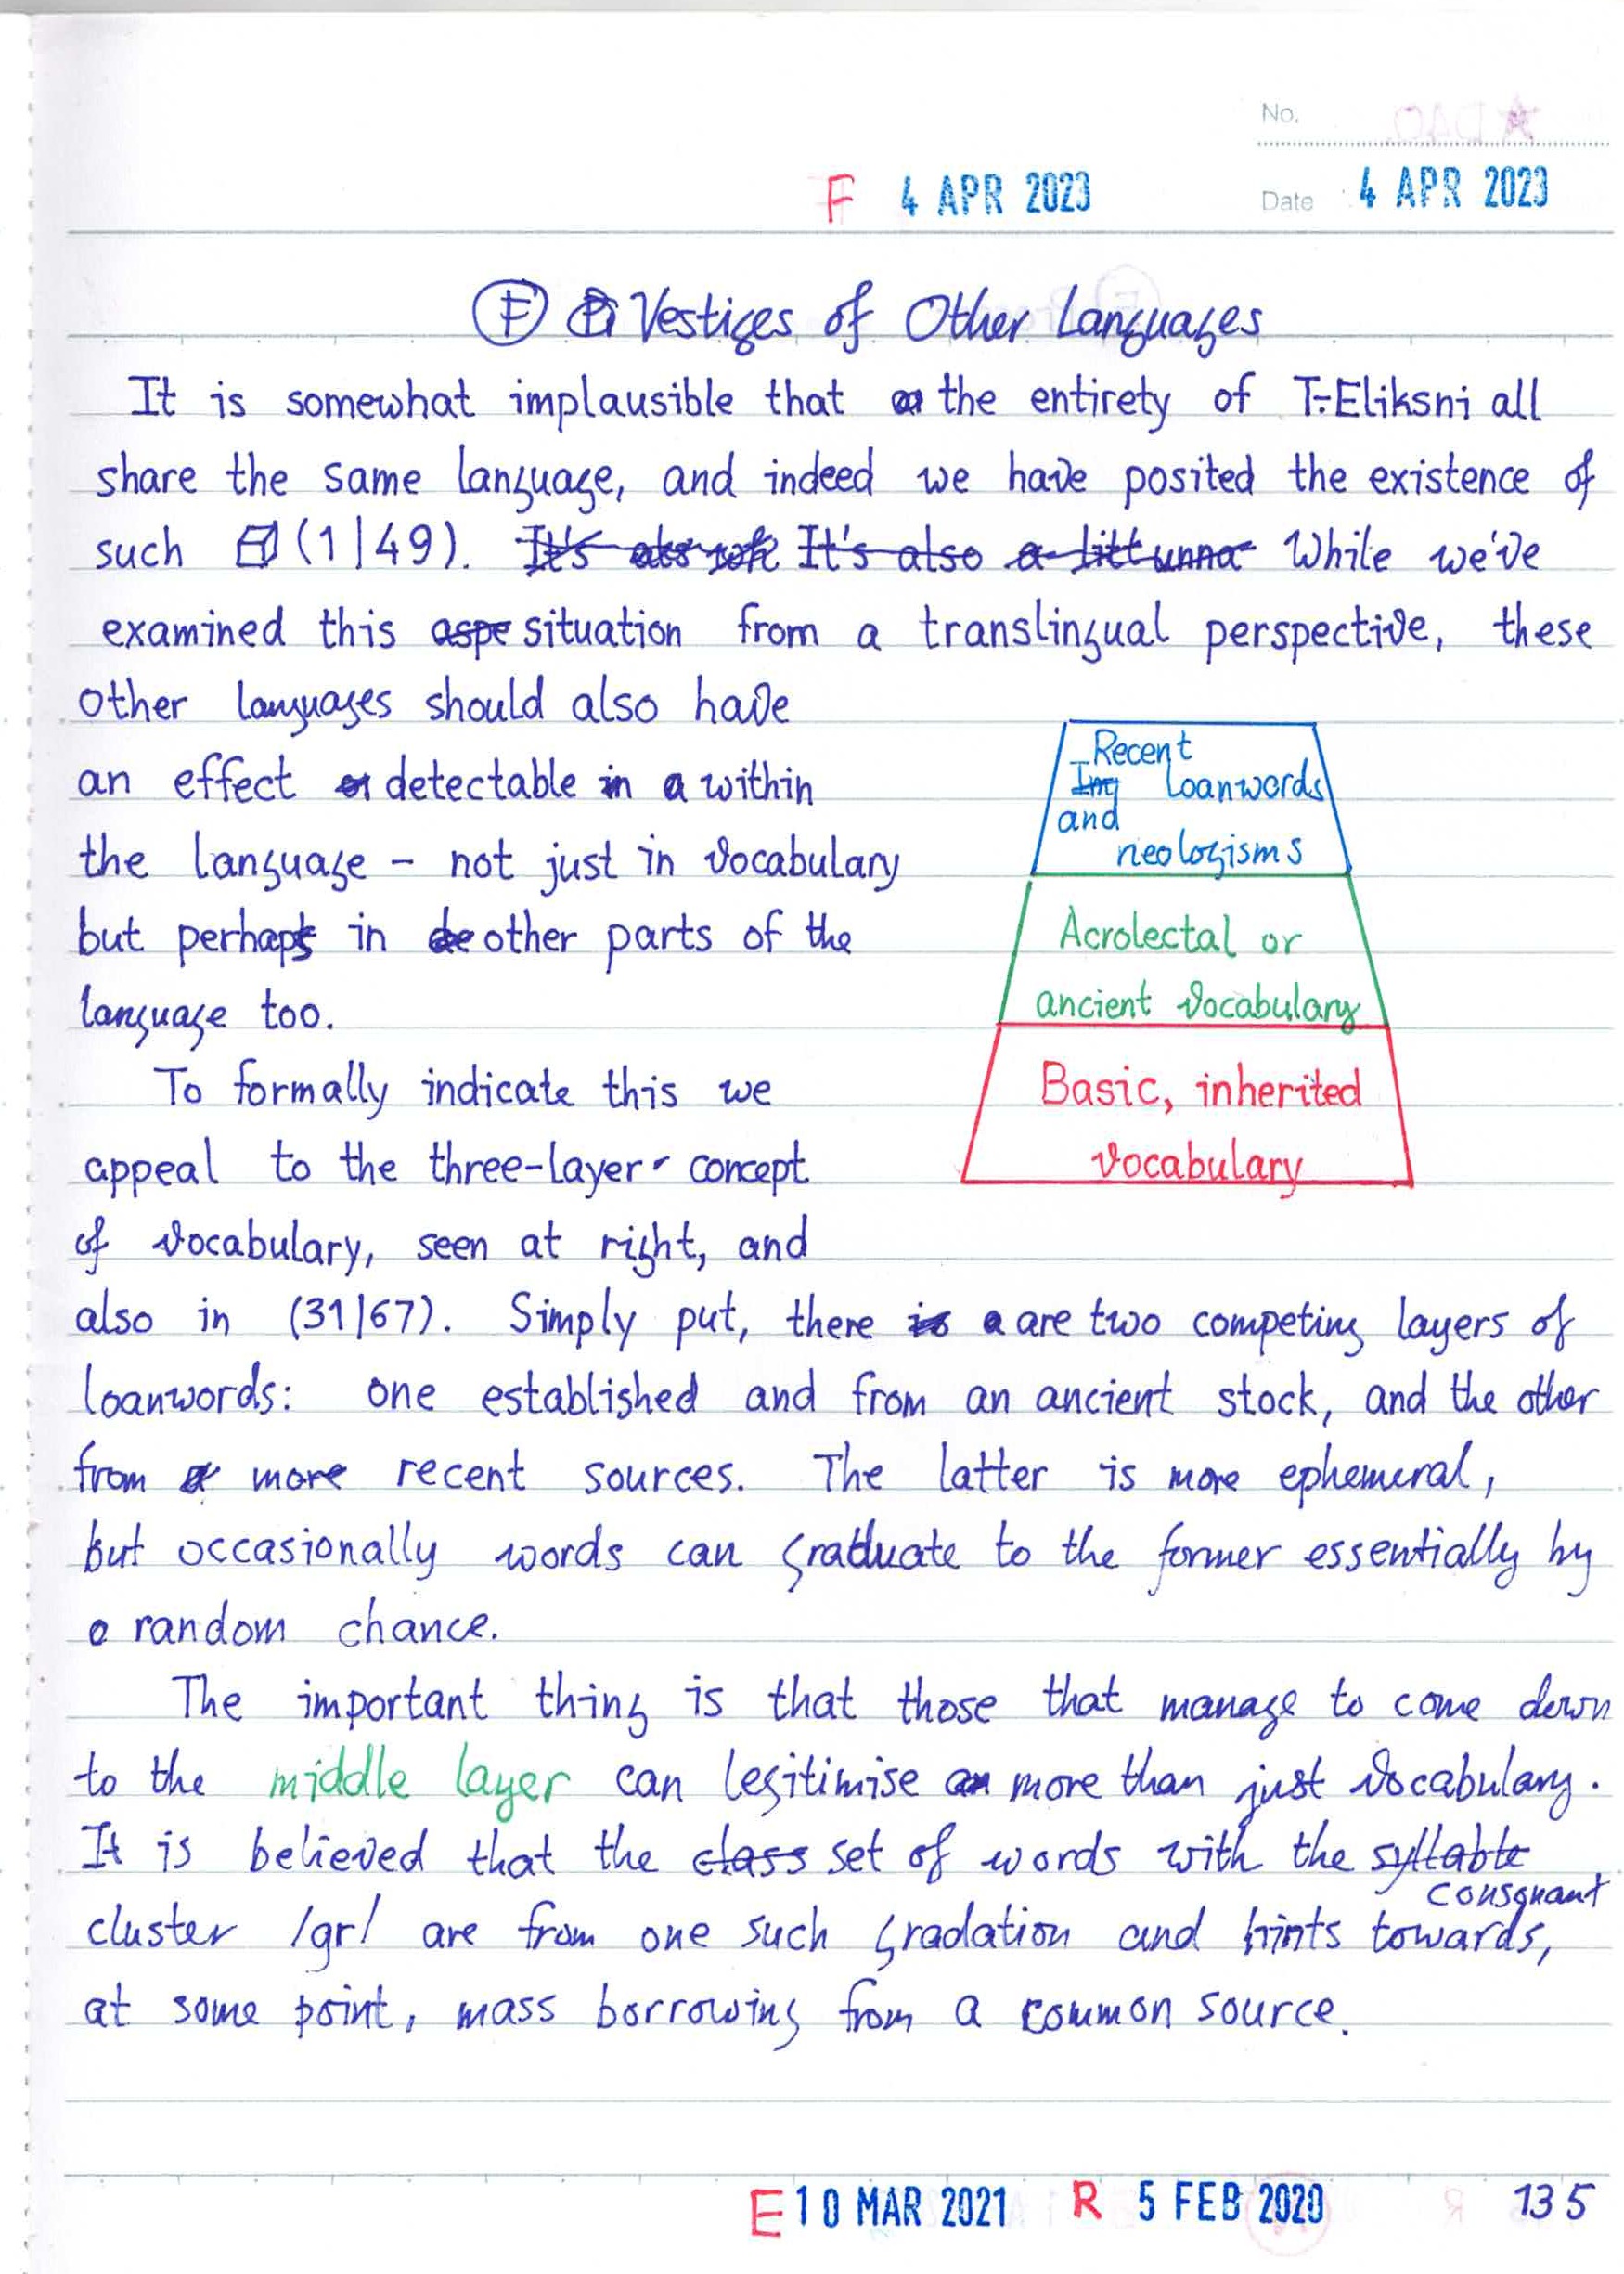 No.
F 4 APR 2023
Date 4 APR 2023
F Vestiges of Other Languages
It is somewhat implausible that the entirety of T-Eliksni all
share the same language, and indeed we have posited the existence of
such (1|49). It's also While we've
examined this aspe situation from a translingual perspective, these
other languages should also have
an effect detectable in a within
the language - not just in vocabulary
but perhaps in other parts of the
language too.
Recent
loanwords
and
neologisms
Acrolectal or
ancient vocabulary
Basic, inherited
vocabulary
To formally indicate this we
appeal to the three-layer concept
of vocabulary, seen at right, and
also in (31|67). Simply put, there is a are two competing layers of
loanwords: one established and from an ancient stock, and the other
from more recent sources. The latter is more ephemeral,
but occasionally words can graduate to the former essentially by
random chance.
The important thing is that those that manage to come down
to the middle layer can legitimise more than just vocabulary.
It is believed that the class set of words with the syllable
consonant
cluster /gr/ are from one such gradation and hints towards,
at some point, mass borrowing from a common source.
E 10 MAR 2021 R 5 FEB 2020 135